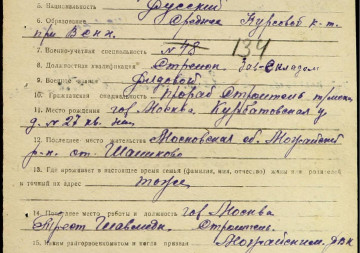 5. Национальность Русский
6. Образование Среднее Курсовой к-т
при В
7. Военно-учетная специальность №48 134
8. Должностная квалификация Стрелок Зав-Складом
9. Военное звание Рядовой
10. Гражданская специальность прораб строитель
11. Место рождения гор. Москва. Курбатовская у
д. №27 кв.
12. Последнее место жительства Московская об. Можайский
р-н. ст. Шаликово
13. Где проживает в настоящее время семья (фамилия, имя, отчество) жены или родителей
и точный их адрес тоже
14. Последнее место работы и должность гор. Москва
Трест Строитель.
15. Каким райгорвоенкоматом и когда призван Можайским